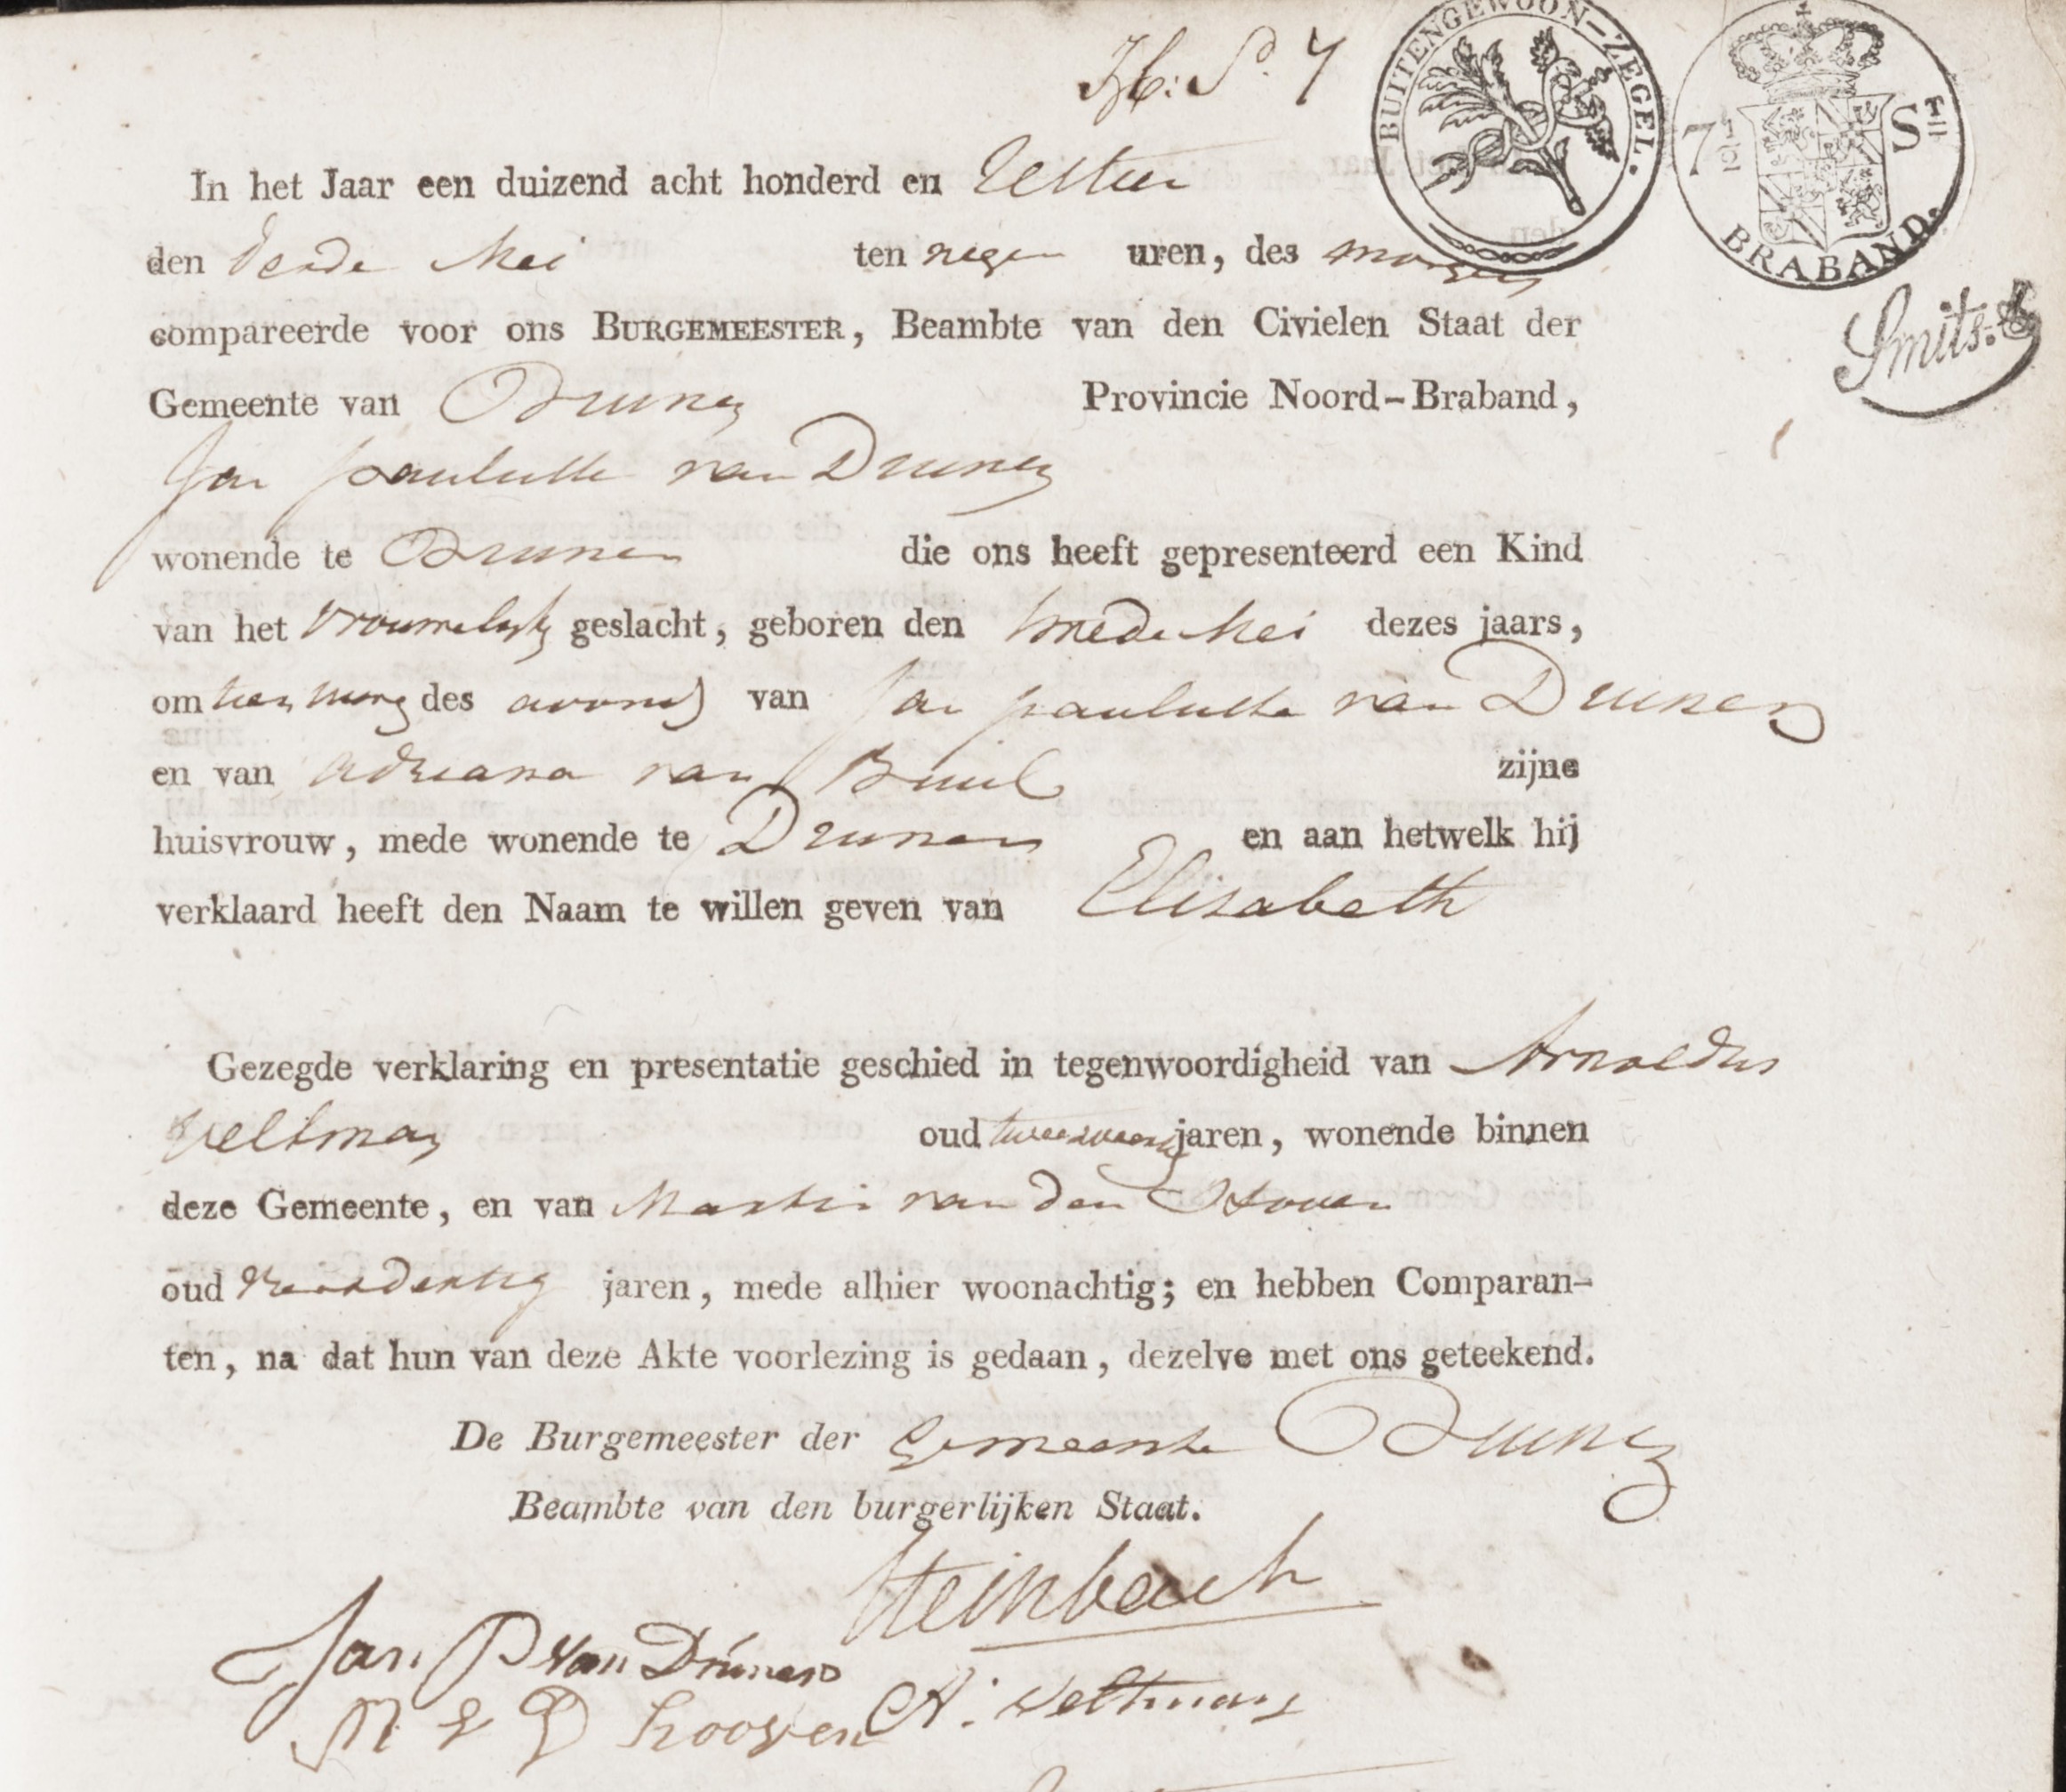 BUITENGEWOON-ZEGEL.
7½ S
BRABAND.
Smits.
In het Jaar een duizend acht honderd en
den derde Mei ten negen uren, des morgens
compareerde voor ons BURGEMEESTER, Beambte van den Civielen Staat der
Gemeente van Drunen Provincie Noord-Braband,
Jan paulusse van Drunen
wonende te Drunen die ons heeft gepresenteerd een Kind
van het vrouwelyk geslacht, geboren den twede Mei dezes jaars,
om tien uure des avonds van Jan paulusse van Drunen
en van Adriana van Buul zijne
huisvrouw, mede wonende te Drunen en aan hetwelk hij
verklaard heeft den Naam te willen geven van Elisabeth
Gezegde verklaring en presentatie geschied in tegenwoordigheid van Arnoldus
Veltman oud jaren, wonende binnen
deze Gemeente, en van Martin van den Hoven
oud jaren, mede alhier woonachtig; en hebben Comparan-
ten, na dat hun van deze Akte voorlezing is gedaan, dezelve met ons geteekend.
De Burgemeester der Gemeente Drunen
Beambte van den burgerlijken Staat.
Steinbach
Jan P van Drunen
M V D hooven A: Veltman